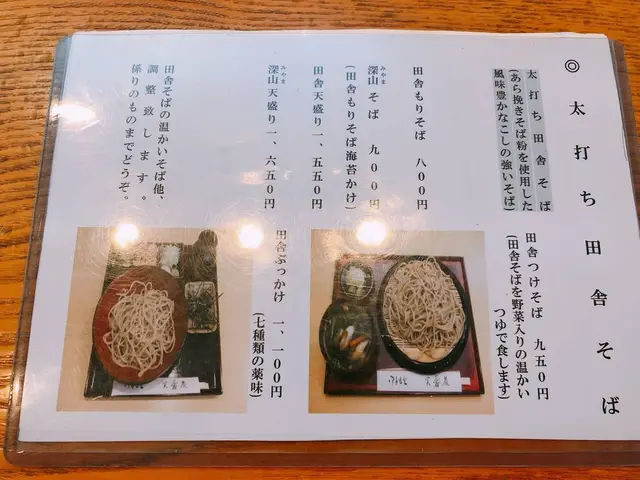 ◎太打ち田舎そば
太打ち田舎そば
(あら挽きそば粉を使用した
風味豊かなこしの強いそば)
田舎もりそば 八〇〇円
深山そば 九〇〇円
みやま
(田舎もりそば海苔かけ)
田舎天盛り一、五五〇円
深山天盛り一、六五〇円
みやま
田舎そばの温かいそば他、
調整致します。
係りのものまでどうぞ。
田舎つけそば 九五〇円
(田舎そばを野菜入りの温かい
つゆで食します)
田舎ぶっかけ 一、一〇〇円
(七種類の薬味)